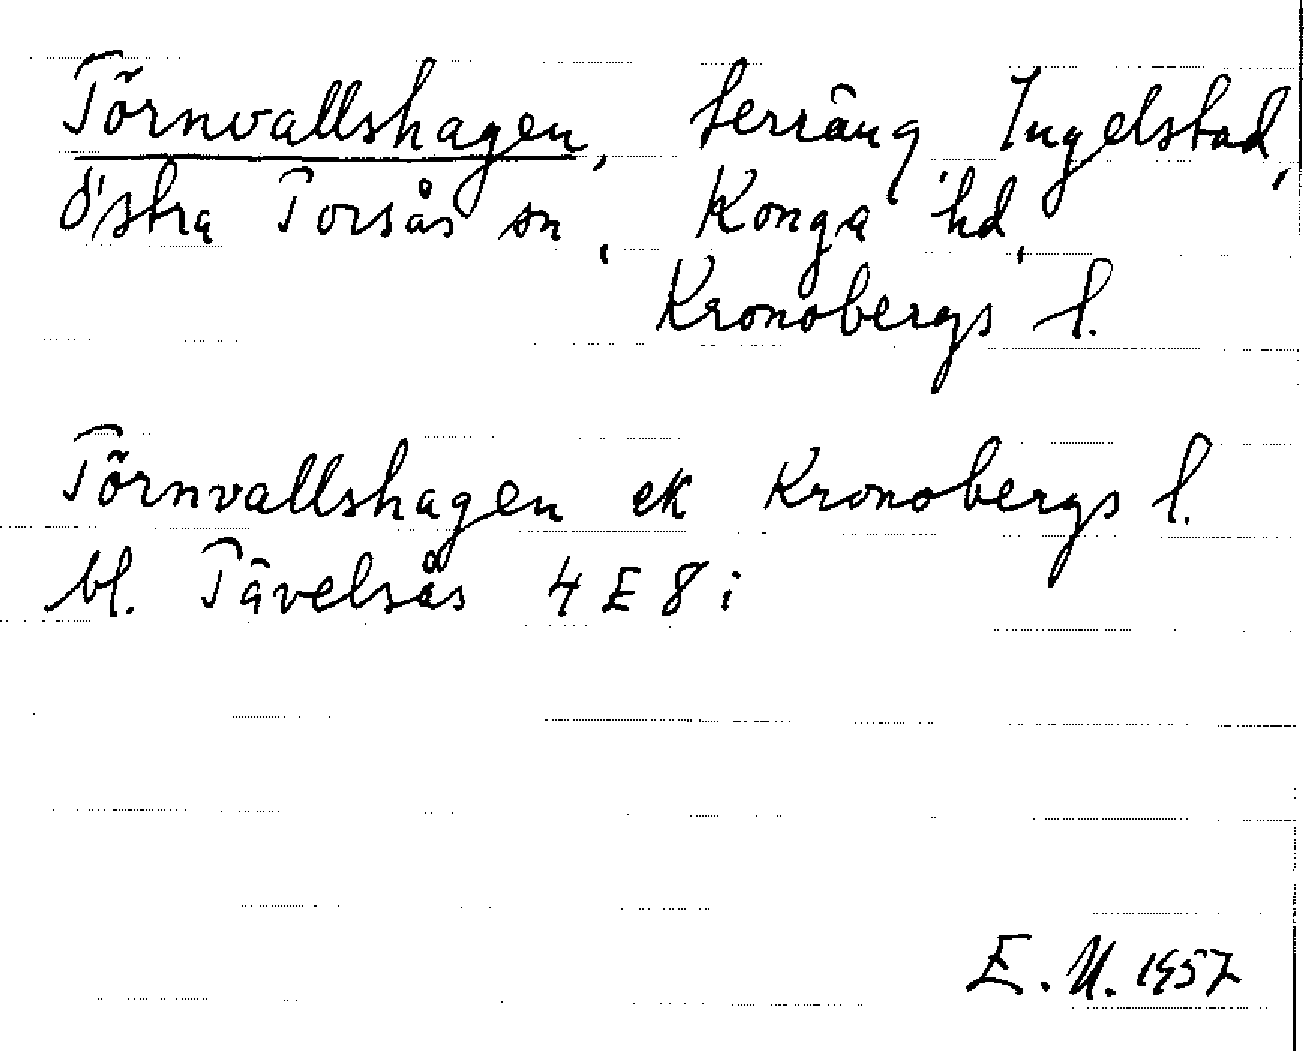 Törnvallshagen, terräng, Ingelstad,
östra Torsås sn, Konga hd,
Kronobergs l.
Törnvallshagen ek Kronobergs l.
bl. Tävelsås 4 E 8 i
E. N. 1957